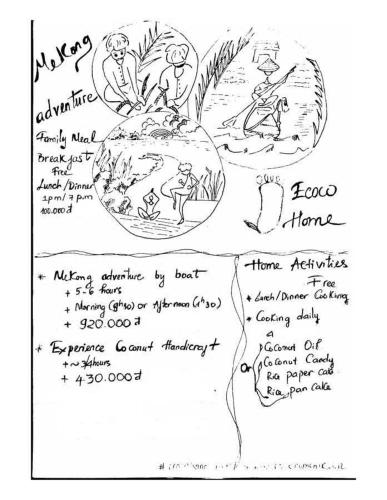 MeKong
adventure
Family Meal
Breakfast
Free
Lunch/Dinner
1pm/7pm
100.000đ
Ecoco
Home
* MeKong adventure by boat
+ 5-6 hours
+ Morning (8h30) or Afternoon (1h30)
+ 920.000đ
* Experience Coconut Handicraft
+ ~ 3/4 hours
+ 430.000đ
Home Activities
Free
* Lunch/Dinner Cooking
* Cooking daily
Coconut Oil
Or
Coconut Candy
Rice paper cake
Rice pan cake